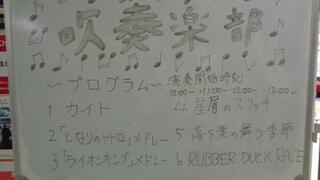 吹奏楽部
〜プログラム〜 演奏開始時刻
・10:00〜 ・11:00〜 ・12:00〜 ・13:00〜
1 カイト
2 「となりのトトロ」メドレー
3 「ライオンキング」メドレー
4 星屑のスリッチ
5 落ち葉の舞う季節
6 RUBBER DUCK RACE